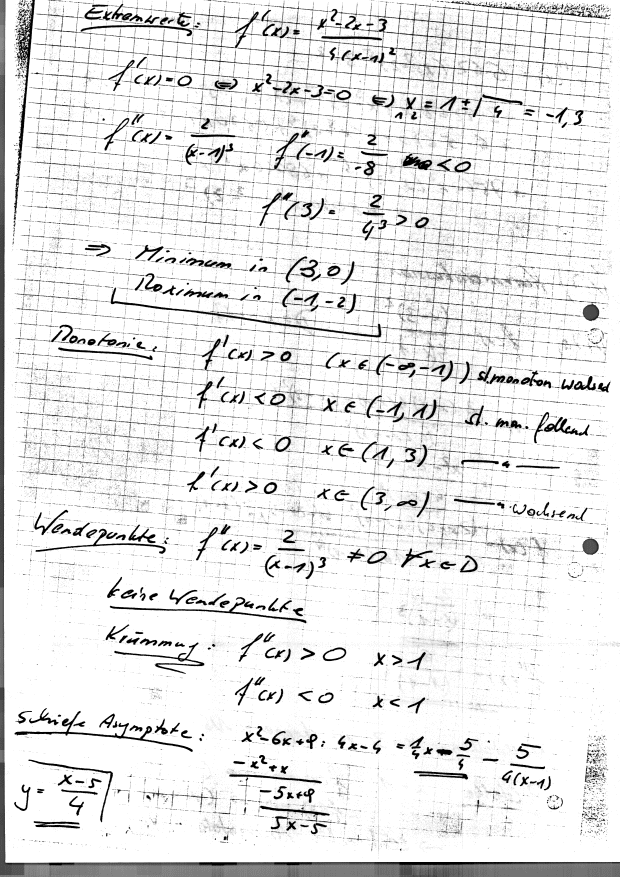 Extremwerte: f'(x) = (x²-2x-3)/(4(x-1)²)
f'(x)=0 ⇔ x²-2x-3=0 ⇔ x₁,₂ = 1 ± √4 = -1,3
f''(x) = 2/(x-1)³ f''(-1) = 2/-8 < 0
f''(3) = 2/4³ > 0
⇒ Minimum in (3,0)
Maximum in (-1,-2)
Monotonie: f'(x) > 0 (x ∈ (-∞,-1)) st. monoton wachsend
f'(x) < 0 x ∈ (-1, 1) st. mon. fallend
f'(x) < 0 x ∈ (1, 3) —— " ——
f'(x) > 0 x ∈ (3, ∞) —— " wachsend
Wendepunkte: f''(x) = 2/(x-1)³ ≠ 0 ∀ x ∈ D
keine Wendepunkte
Krümmung: f''(x) > 0 x > 1
f''(x) < 0 x < 1
Schiefe Asymptote: x²-6x+9 : 4x-4 = 1/4 x - 5/4 - 5/(4(x-1))
-x²+x
-5x+9
5x-5
y = (x-5)/4